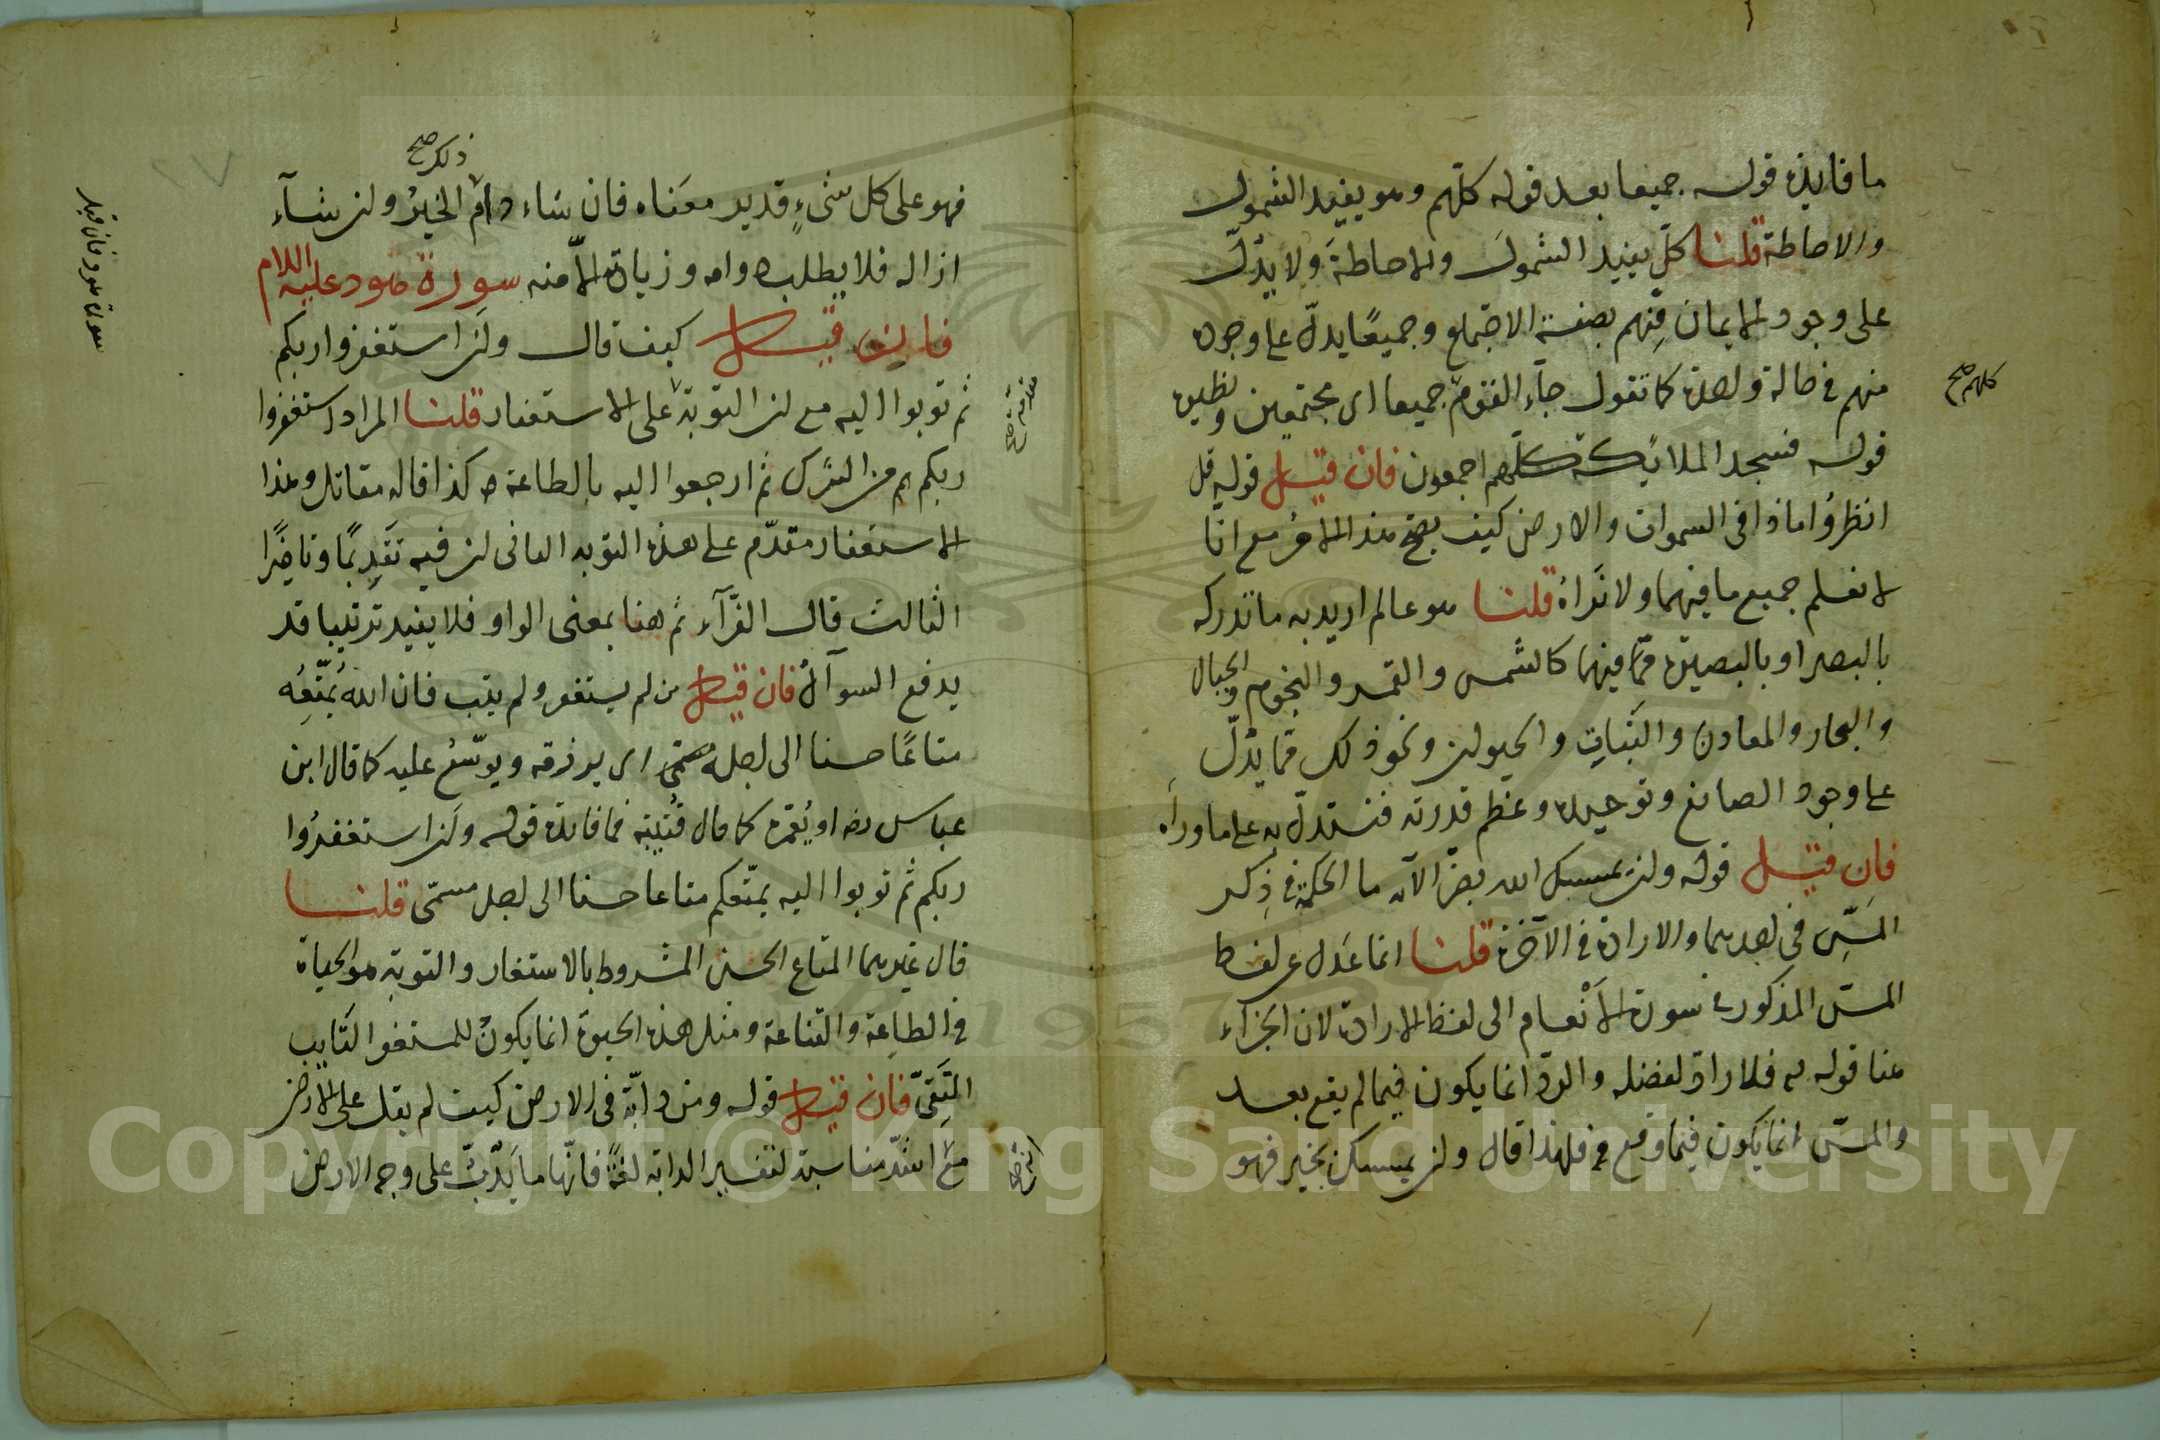 ما فايدة قوله جميعا بعد قوله كلّهم وهو يفيد الشمول
والاحاطة قلنا كلّ يفيد الشمولَ والاحاطةَ ولا يدُلّ
على وجود الايمان مِنهم بصفة الاجتماع وجميعًا يدلّ على وجوده
منهم في حالة واحدة كما تقول جآء القوم جميعا اى مجتمعين ونظيره
كلهم صح
قوله فسجد الملائكة كلّهم اجمعون فان قيل قوله قل
انظرُوا ماذا فى السموات والارض كيف يصح هذا الامر مع انا
لا نعلم جميع ما فيهما ولا نَراهُ قلنا هو عالم اريد به ما تدركه
بالبصر او بالبصيرة ممّا فيهما كالشمس والقمر والنجوم والجبال
والبحار والمعادن والنَبات والحيوان ونحو ذلك ممّا يدُلّ
على وجود الصانع وتوحيده وعظم قدرته فنستدلّ به على ما ورآه
فان قيل قوله وان يمسسك الله بضرّ الآيه ما الحكمة في ذِكر
المسِّ فى احدهما والارادة في الآخرة قلنا انما عَدل عن لفظ
المسّ المذكور في سورة الاَنْعام الى لفظ الارادة لان الجزآء
هنا قوله به فلا رادّ لفضله والردّ انما يكون فيما لم يقع بعد
والمسّ انما يكون فيما وقع فلهذا قال وان يمسسك بخير فهو
فهو على كل شىءٍ قدير معَناه فان شاء دام الخير وان شآء
ذلك صح
ازاله فلا يطلب دوامه وزيادة الّا منه سورة هود عليه السلام
سورة هود فان قيل
فان قيل كيف قال وان استغفروا ربكم
ثم توبوا اليه مع ان التوبة على الاستغفار قلنا المراد استغفروا
مقدمة صح
ربكم من الشرك ثم ارجعوا اليه بالطاعة كذا قاله مقاتل وهذا
الاستغفار مقدّم على هذه التوبه الثانى ان فيه تقديمًا وتاخيرًا
الثالث قال الفرّآء ثم هنا بمعنى الواو فلا يفيد ترتيبا قد
يدفع السوآل فان قيل من لم يستغفر ولم يتب فان الله يُمتّعِهُ
متاعًا حسنا الى اجل مسمّى اى يرزقه ويوسّعُ عليه كما قال ابن
عباس رضه او يُعَمّره كما قال قُتَيبَة فما فائدة قوله وان استغفرُوا
ربكم ثم توبوا اليه يمتّعكم متاعا حسنا الى اجل مسمّى قلنا
قال غيرهما المتاع الحسن المشروط بالاستغفار والتوبة هو الحياة
في الطاعة والقناعة ومثل هذه الحيوة انما يكونُ للمستغفر التَايب
المتّقى فان قيل قوله وما من دابّة فى الارض كيف لم يقل على الارض
مع اشدّ مناسبة لتفسير الدابة لغةً فانّها ما يَدُبُّ على وجه الارض
انه صح